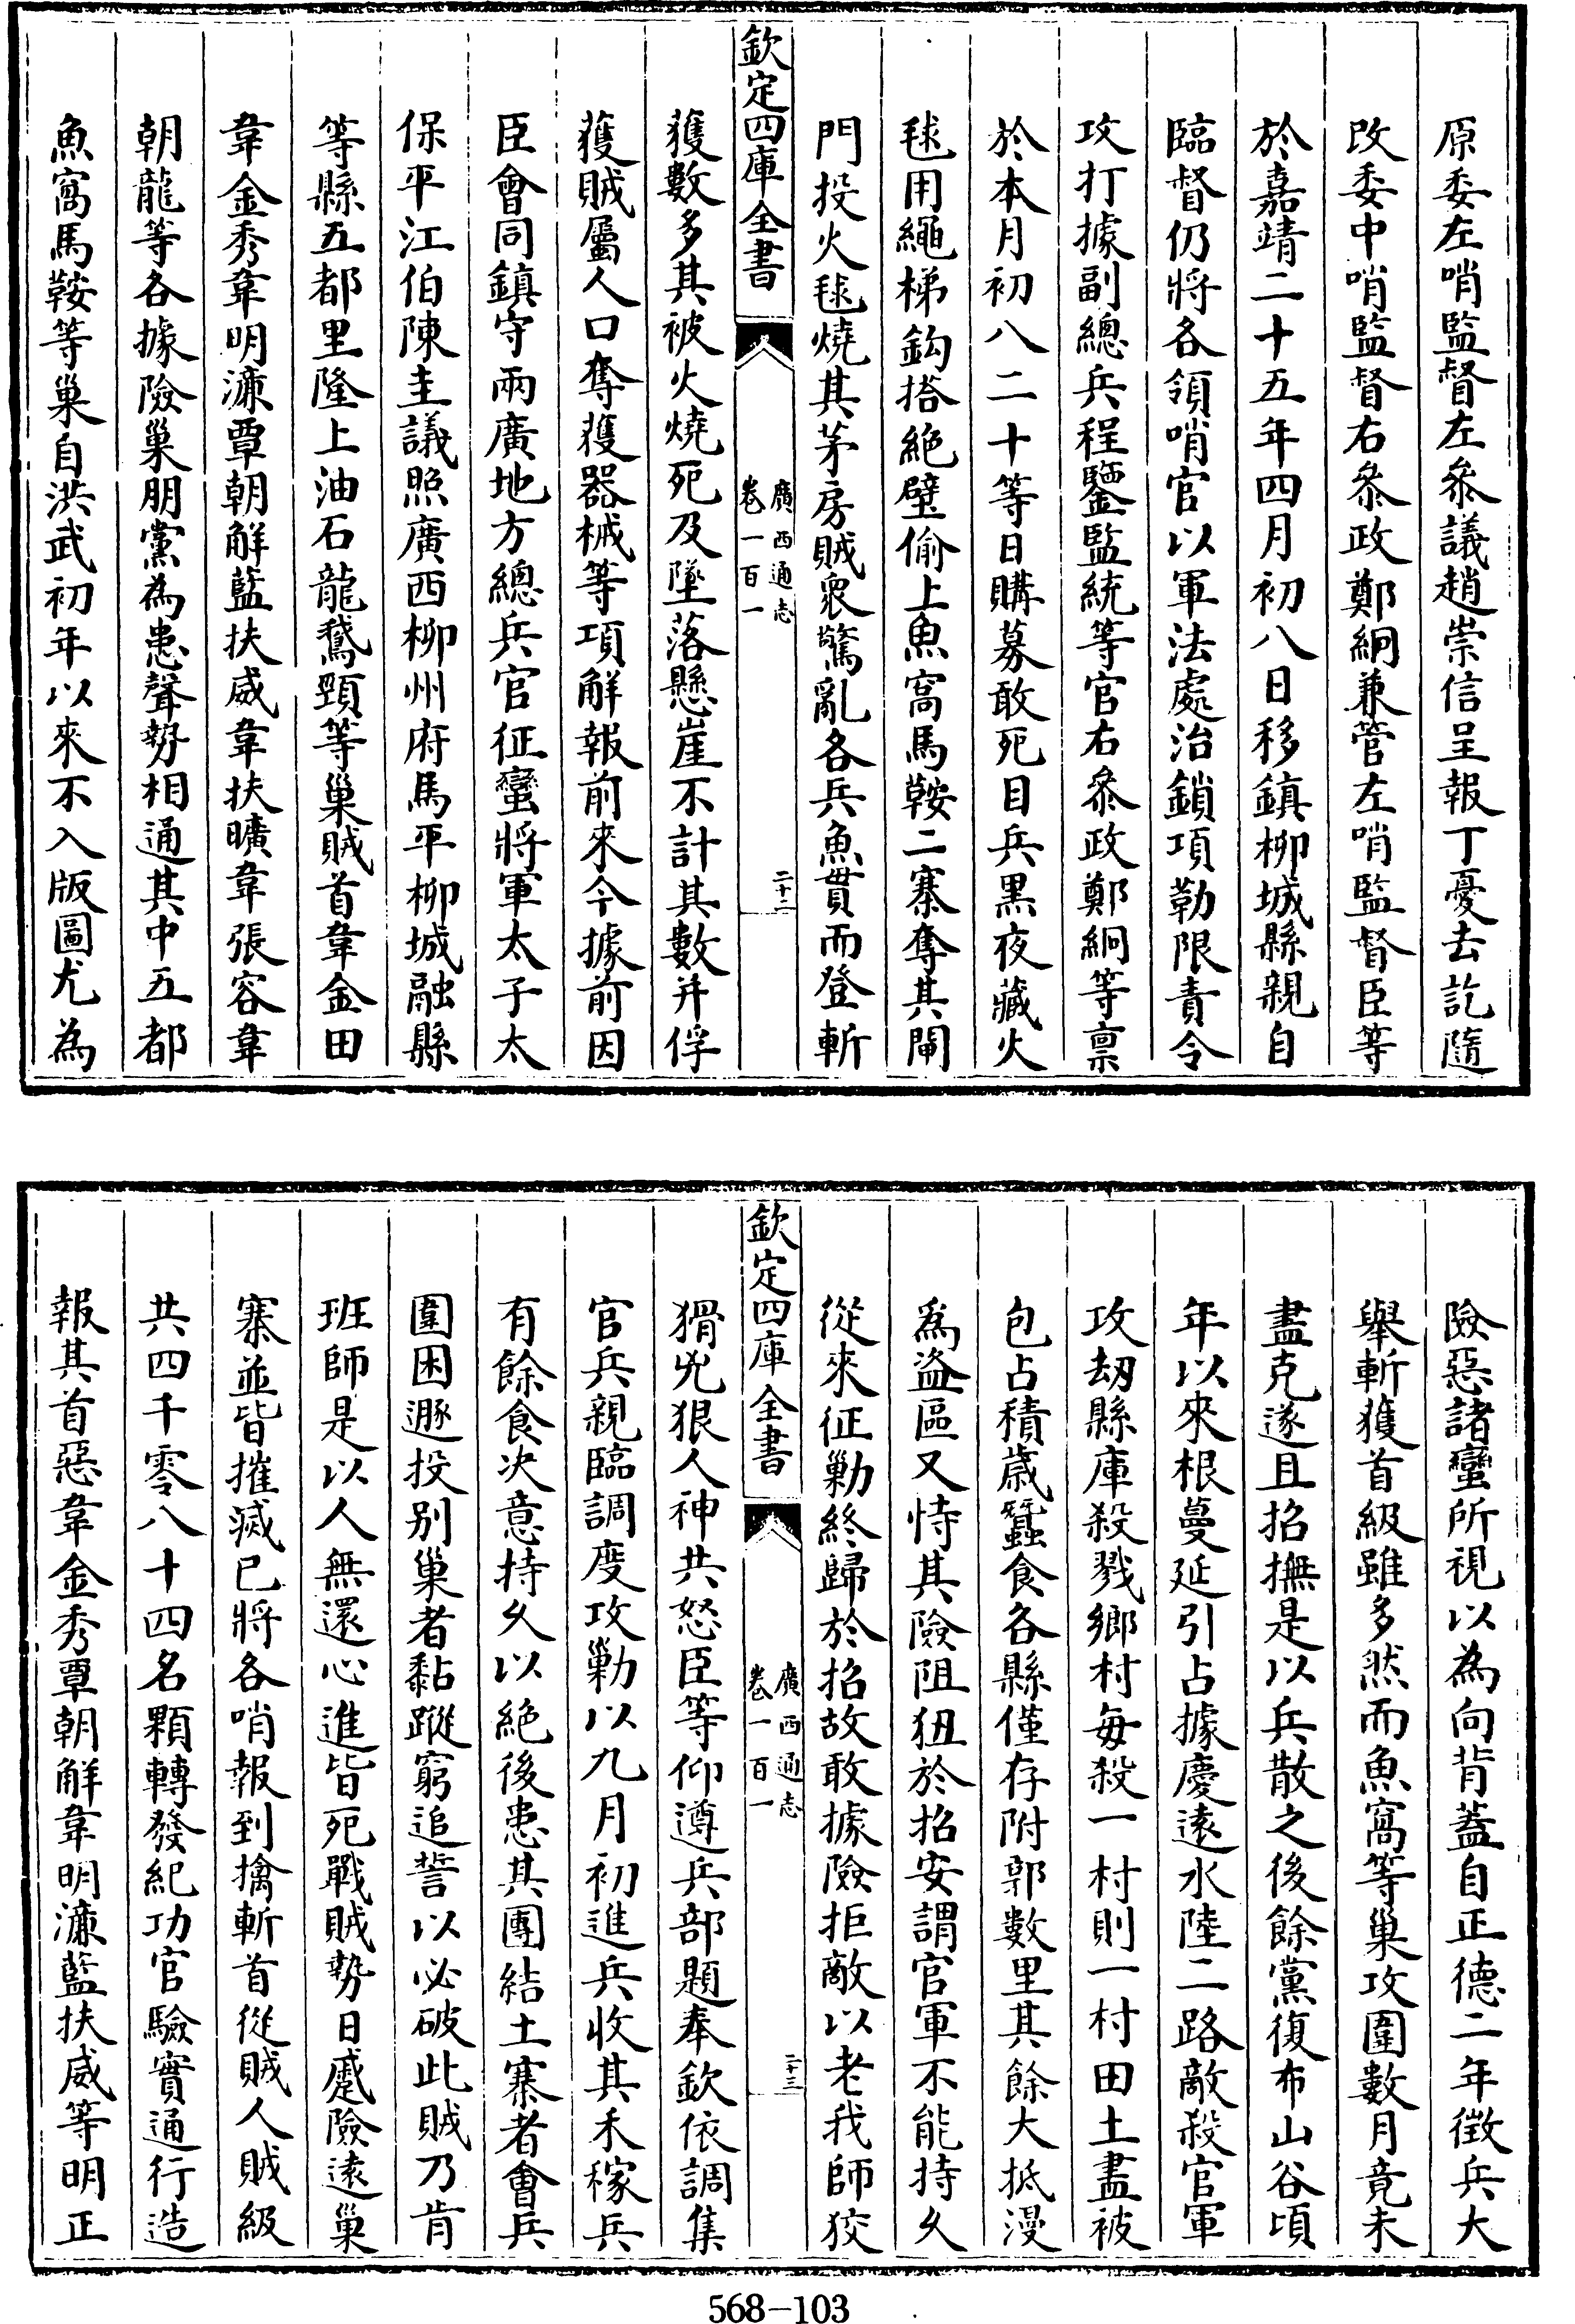 原委左哨監督左叅議趙崇信呈報丁憂去訖隨
改委中哨監督右叅政鄭絅兼管左哨監督臣等
於嘉靖二十五年四月初八日移鎮柳城縣親自
臨督仍將各領哨官以軍法處治鎖項勒限責令
攻打據副總兵程鑒監統等官右叅政鄭絅等禀
於本月初八二十等日購募敢死目兵黑夜藏火
毬用繩梯鈎搭絶壁偷上魚窩馬鞍二寨奪其閘
門投火毬燒其茅房賊衆驚亂各兵魚貫而登斬
欽定四庫全書
廣西通志
卷一百一
二十二
獲數多其被火燒死及墜落懸崖不計其數并俘
獲賊屬人口奪獲器械等項解報前來今據前因
臣會同鎮守兩廣地方總兵官征蠻將軍太子太
保平江伯陳圭議照廣西柳州府馬平柳城融縣
等縣五都里隆上油石龍鵞頸等巢賊首韋金田
韋金秀韋明濂覃朝解藍扶威韋扶曠韋張容韋
朝龍等各據險巢朋黨為患聲勢相通其中五都
魚窩馬鞍等巢自洪武初年以來不入版圖尤為
險惡諸蠻所視以為向背蓋自正德二年徵兵大
舉斬獲首級雖多然而魚窩等巢攻圍數月竟未
盡克遂且招撫是以兵散之後餘黨復布山谷頃
年以來根蔓延引占據慶遠水陸二路敵殺官軍
攻刼縣庫殺戮鄉村每殺一村則一村田土盡被
包占積歲蠶食各縣僅存附郭數里其餘大抵漫
為盜區又恃其險阻狃於招安謂官軍不能持久
從來征勦終歸於招故敢據險拒敵以老我師狡
欽定四庫全書
廣西通志
卷一百一
二十三
猾兇狠人神共怒臣等仰遵兵部題奉欽依調集
官兵親臨調度攻勦以九月初進兵收其禾稼兵
有餘食决意持久以絶後患其團結土寨者會兵
圍困遯投别巢者黏蹤窮追誓以必破此賊乃肯
班師是以人無還心進皆死戰賊勢日蹙險遠巢
寨並皆摧滅已將各哨報到擒斬首從賊人賊級
共四千零八十四名顆轉發紀功官驗實通行造
報其首惡韋金秀覃朝解韋明濂藍扶威等明正
568-103